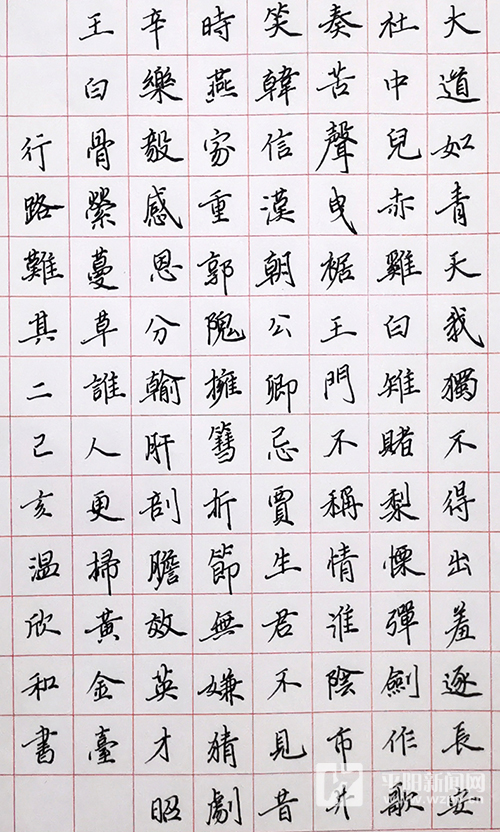 大道如青天我獨不得出羞逐長安
社中兒赤雞白雉賭梨慄彈劍作歌
奏苦聲曳裾王門不稱情淮陰市井
笑韓信漢朝公卿忌賈生君不見昔
時燕家重郭隗擁篲折節無嫌猜劇
辛樂毅感恩分輸肝剖膽效英才昭
王白骨縈蔓草誰人更掃黃金臺
行路難其二己亥溫欣和書
平阳新闻网